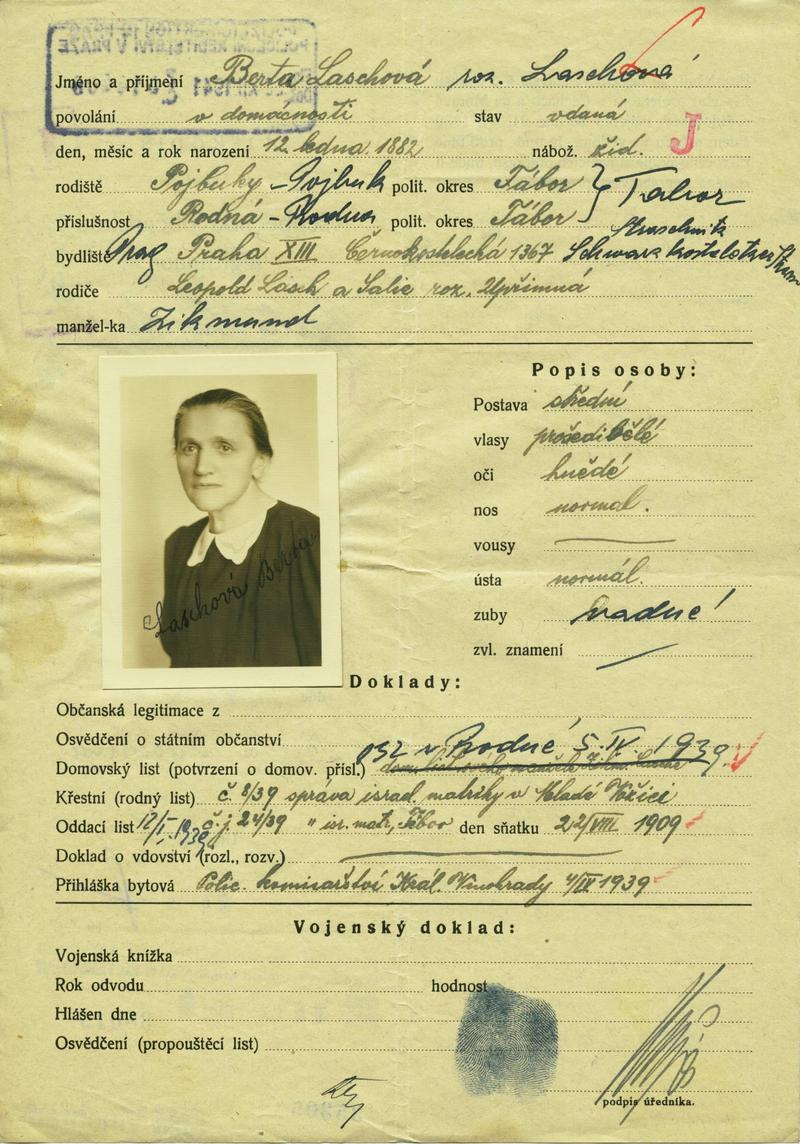 Jméno a příjmení Berta Laschová roz. Laschová
povolání v domácnosti stav vdaná
J
den, měsíc a rok narození 12. ledna 1882 nábož. žid.
rodiště Pojbuky - Pojbuk polit. okres Tábor } Tabor
příslušnost Rodná - Rodna polit. okres Tábor
Straschnitz
bydliště Prag Praha XIII Černokostelecká 1367
rodiče Leopold Lasch a Salie roz. Upřimná
manžel-ka Zikmund
Popis osoby:
Postava střední
vlasy prošedivělé
oči hnědé
nos normal.
vousy
ústa normál.
zuby vadné
zvl. znamení
Laschová Berta
Doklady:
Občanská legitimace z
Osvědčení o státním občanství
Domovský list (potvrzení o domov. přísl.) v Rodné 5. IV. 1939.
Křestní (rodný list) č. 8/39 správa israel. matriky v Mladé Vožici
Oddací list č.j. 24/39 " isr. matr. Tábor den sňatku 22/VIII 1909
Doklad o vdovství (rozl., rozv.)
Přihláška bytová Polic. komisařství Král. Vinohrady 1939
Vojenský doklad:
Vojenská knížka
Rok odvodu hodnost
Hlášen dne
Osvědčení (propouštěcí list)
podpis úředníka.